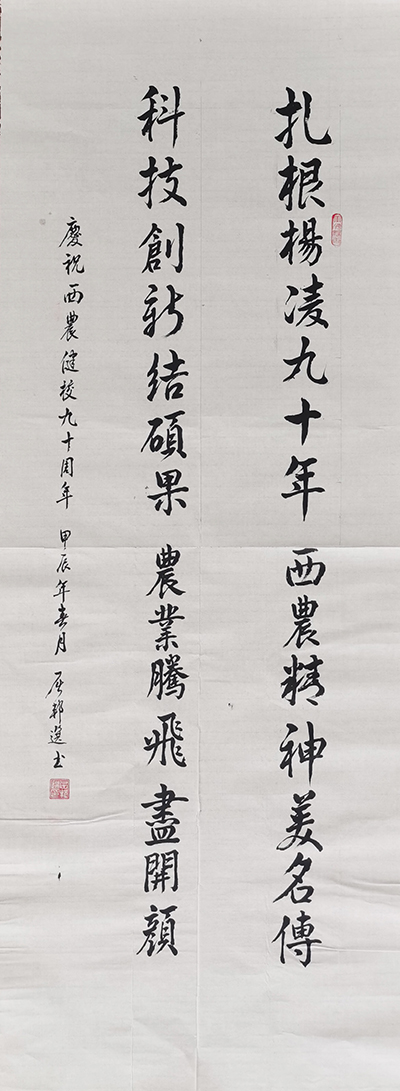 扎根楊凌九十年 西農精神美名傳
科技創新結碩果 農業騰飛盡開顔
慶祝西農健校九十周年 甲辰年春月 屈邦選书